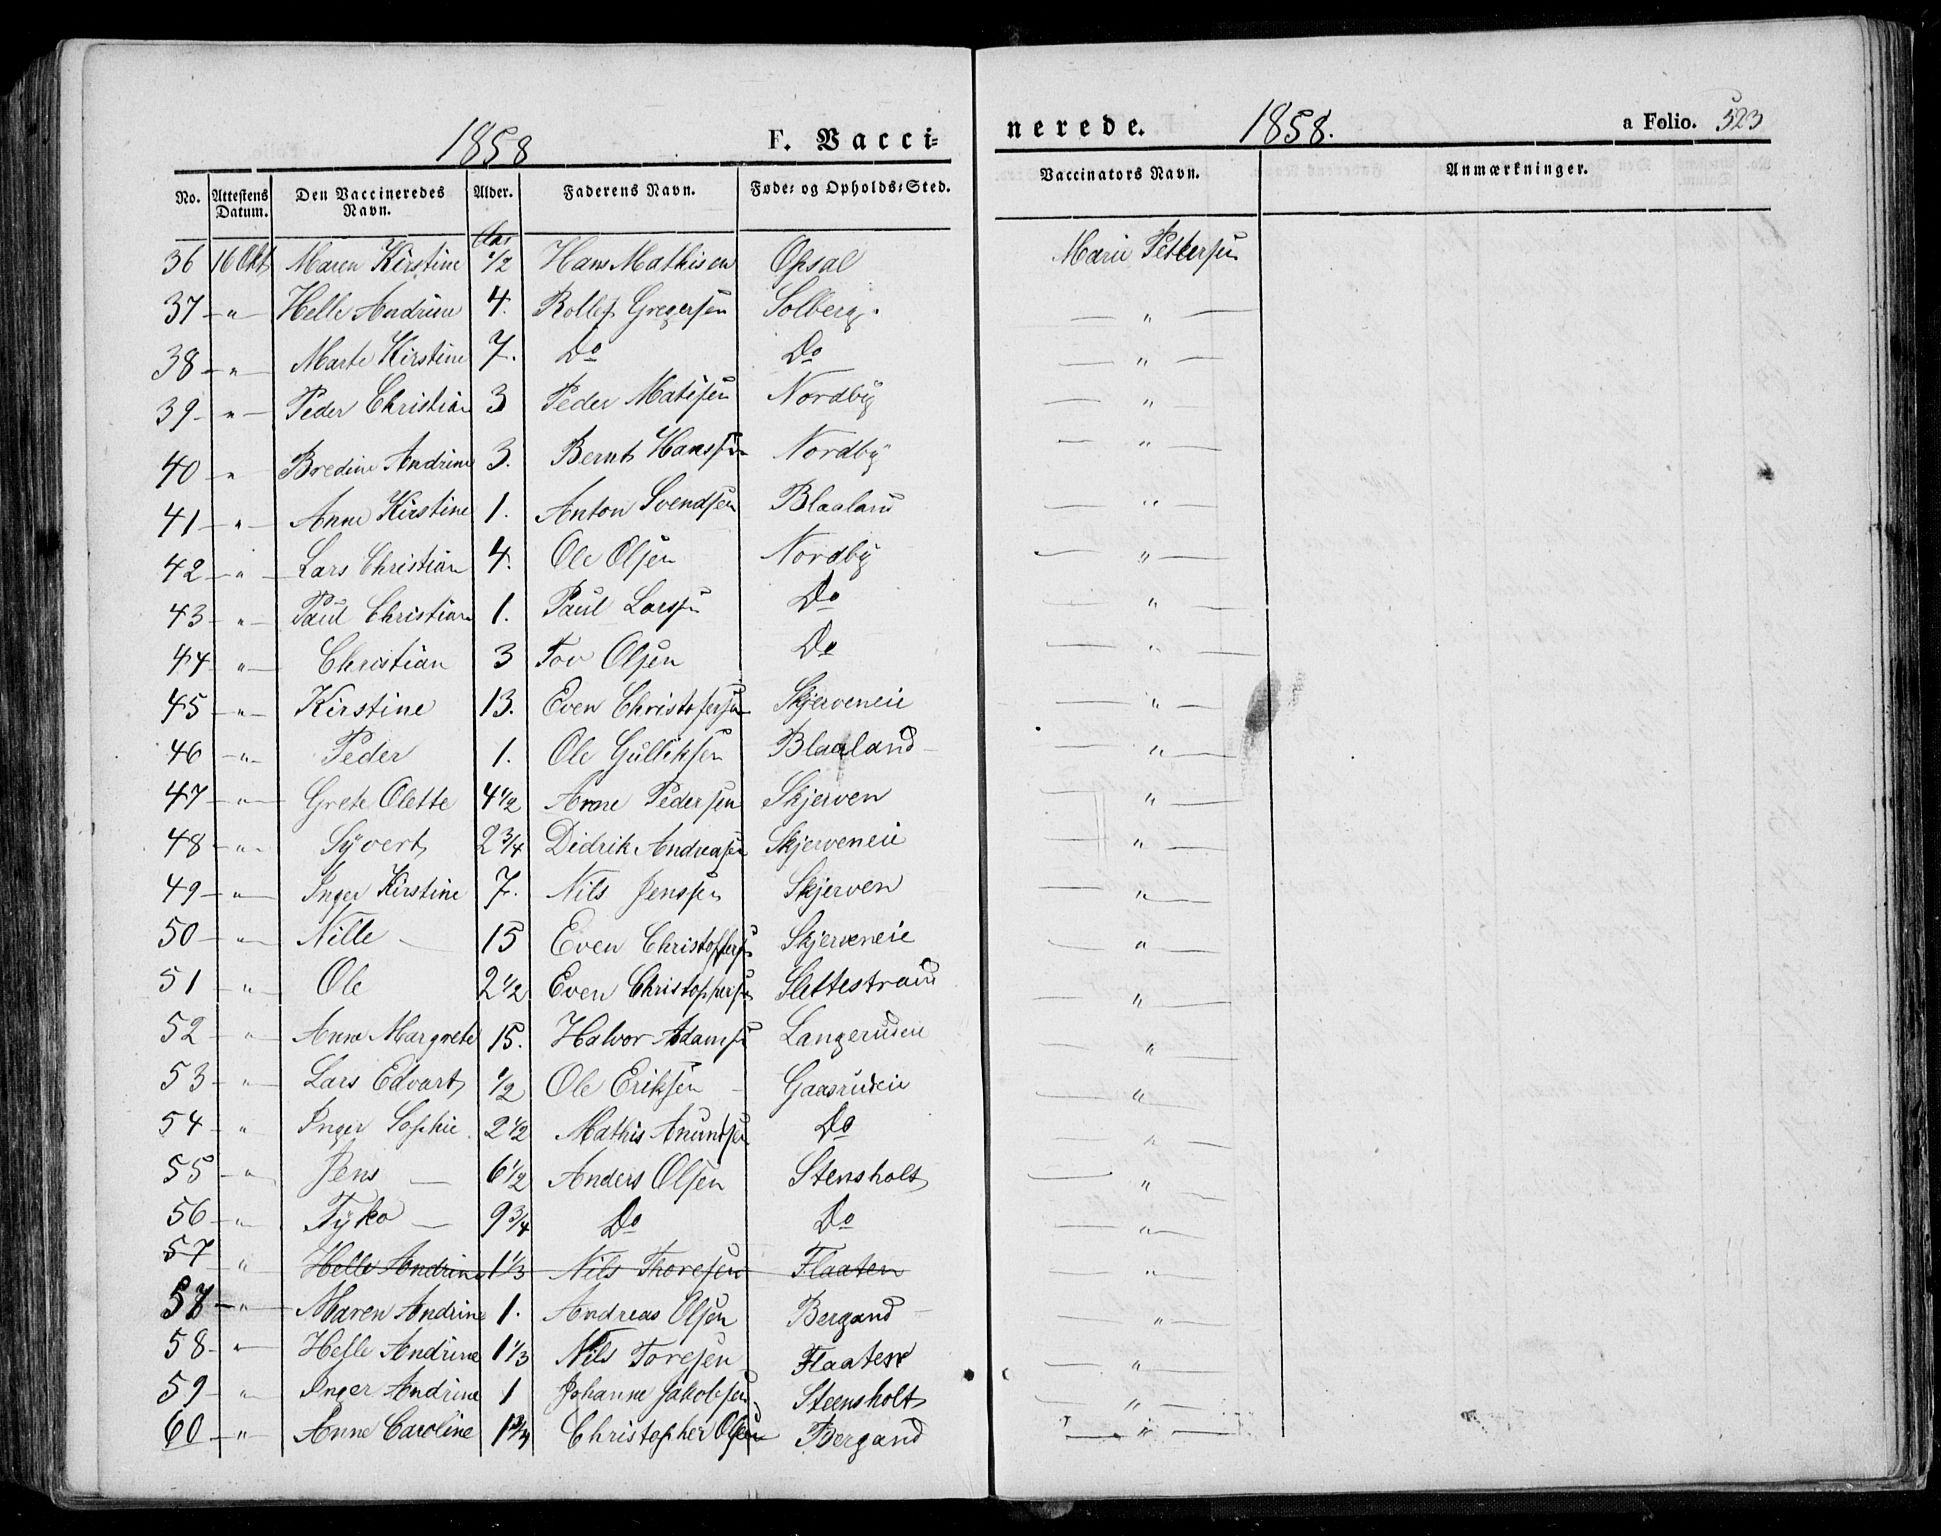 1858 F. Vacci=
nerede. 1858. a Folio. 523
No. Attestens Datum. Den Vaccineredes Navn. Alder. Faderens Navn. Føde= og Opholds=Sted. Vaccinators Navn. Anmærkninger.
36 16 Okt Maren Kirstine Aar 1/2 Hans Mathisen Opsal Marie Pettersen
37 — „ — Helle Andrine 4. Rollef Gregersen Solberg. — „ —
38 — „ Marte Kirstine 7. Do Do — „ —
39 — „ — Peder Christian 3 Peder Matisen Nordby — „ —
40 „ Bredine Andrine 3. Bernt Hanssen Nordby — „ —
41 — „ — Anne Kirstine 1. Anton Svendsen Blaaland „ —
42 — „ — Lars Christian 4. Ole Olsen Nordby — „ —
43 — „ — Paul Christian 1. Paul Larsen Do — „ —
44 — „ — Christian 3 Tov Olsen Do — „ —
45 — „ — Kirstine 13. Even Christofersen Skjerveneie — „ —
46 — „ — Peder 1. Ole Gulliksen Blaaland — — „ —
47 — „ — Grete Olette 4 1/2 Arne Pedersen Skjerven — „ —
48 — „ — Syvert 2 3/4 Didrik Andreasen Skjerveneie — „ —
49 — „ — Inger Kirstine 7. Nils Jenssen Skjerven — „ —
50 — „ — Nille — 15 Even Christoffersen Skjerveneie — „ —
51 — „ — Ole 2 1/2 Even Christophersen Slettestrand — „ —
52 — „ — Anne Margrete 15. Halvor Adamsen Langerudeie — „ —
53 — „ — Lars Edvart 1/2 Ole Eriksen — Gaasrudeie — „ —
54 — „ Inger Sophie 2 1/2 Mathis Anundsen Do — „ —
55 — „ — Jens — 6 1/2 Anders Olsen Stensholt — „ —
56 — „ — Tyko — 9 3/4 Do Do — „ —
57 „ Helle Andrine 1 1/3 Nils Thoresen Flaaten — „ —
57 — „ — Maren Andrine 1. Andreas Olsen Bergand — — „ —
58 — „ — Helle Andrine 1 1/3 Nils Toresen Flaaten — „ —
59 — „ — Inger Andrine 1 Johanne Jakobsen Steensholt — „ —
60 — „ — Anne Caroline 1 3/4 Christopher Olsen Bergand — „ —